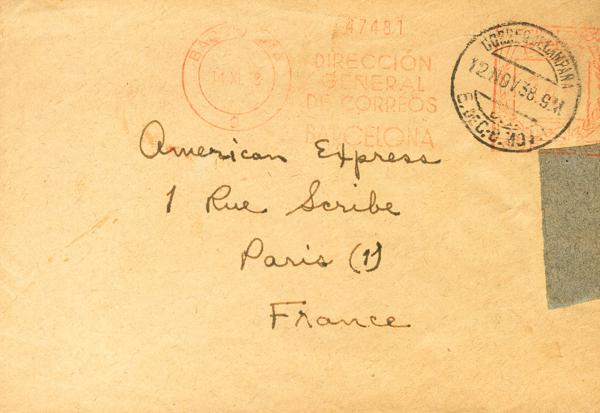 47481
DIRECCIÓN
GENERAL
DE CORREOS
BARCELONA
CORREO DE CAMPAÑA
12 NOV 38.9.M
American Express
1 Rue Scribe
Paris (1)
France